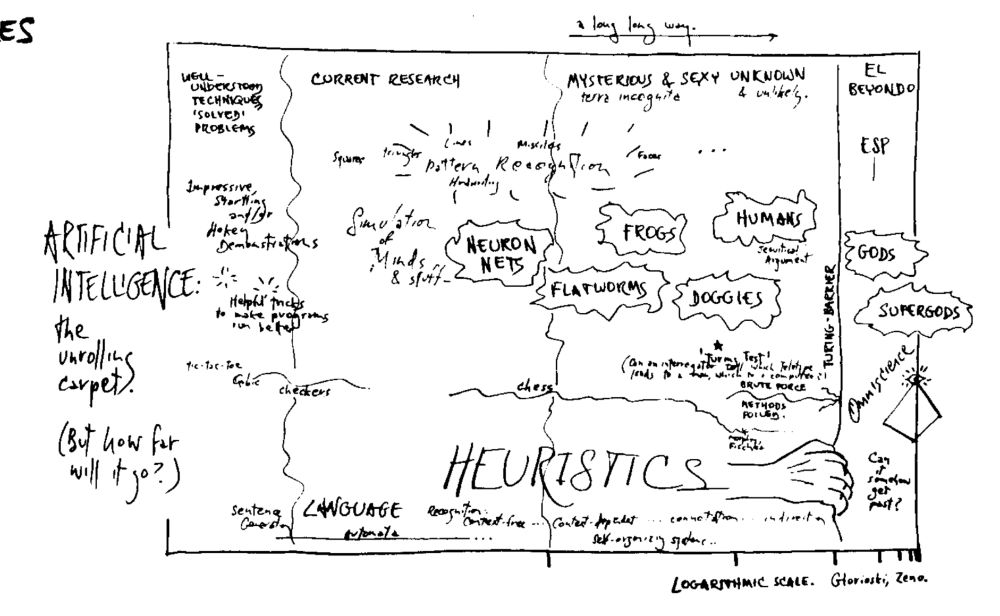 ES
a long long way.
WELL-
UNDERSTOOD
TECHNIQUES,
'SOLVED'
PROBLEMS
CURRENT RESEARCH
MYSTERIOUS & SEXY UNKNOWN
terra incognita & unlikely.
EL
BEYONDO
ESP
Squares
Triangles
Lines
Missiles
Faces
...
Pattern Recognition
Handwriting
Impressive,
Startling
and/or
Hokey
Demonstrations
Simulation
of
Minds
& stuff
NEURON
NETS
FROGS
HUMANS
Jesuitical
Argument
FLATWORMS
DOGGIES
GODS
SUPERGODS
TURING-BARRIER
ARTIFICIAL
INTELLIGENCE:
the
unrolling
carpet.
(But how far
will it go?)
Helpful tricks
to make programs
run better
Tic-Tac-Toe
Cubic
checkers
chess
'Turing Test'
(Can an interrogator tell which Teletype
leads to a man, which to a computer?)
BRUTE FORCE
METHODS
FOILED.
Omniscience
HEURISTICS
Can
it
somehow
get
past?
Sentence
Generation
LANGUAGE
automata
Recognition:
Context-free ... Context-dependent ... connotation ... indirection
Self-organizing systems..
LOGARITHMIC SCALE. Glorioski, Zero.